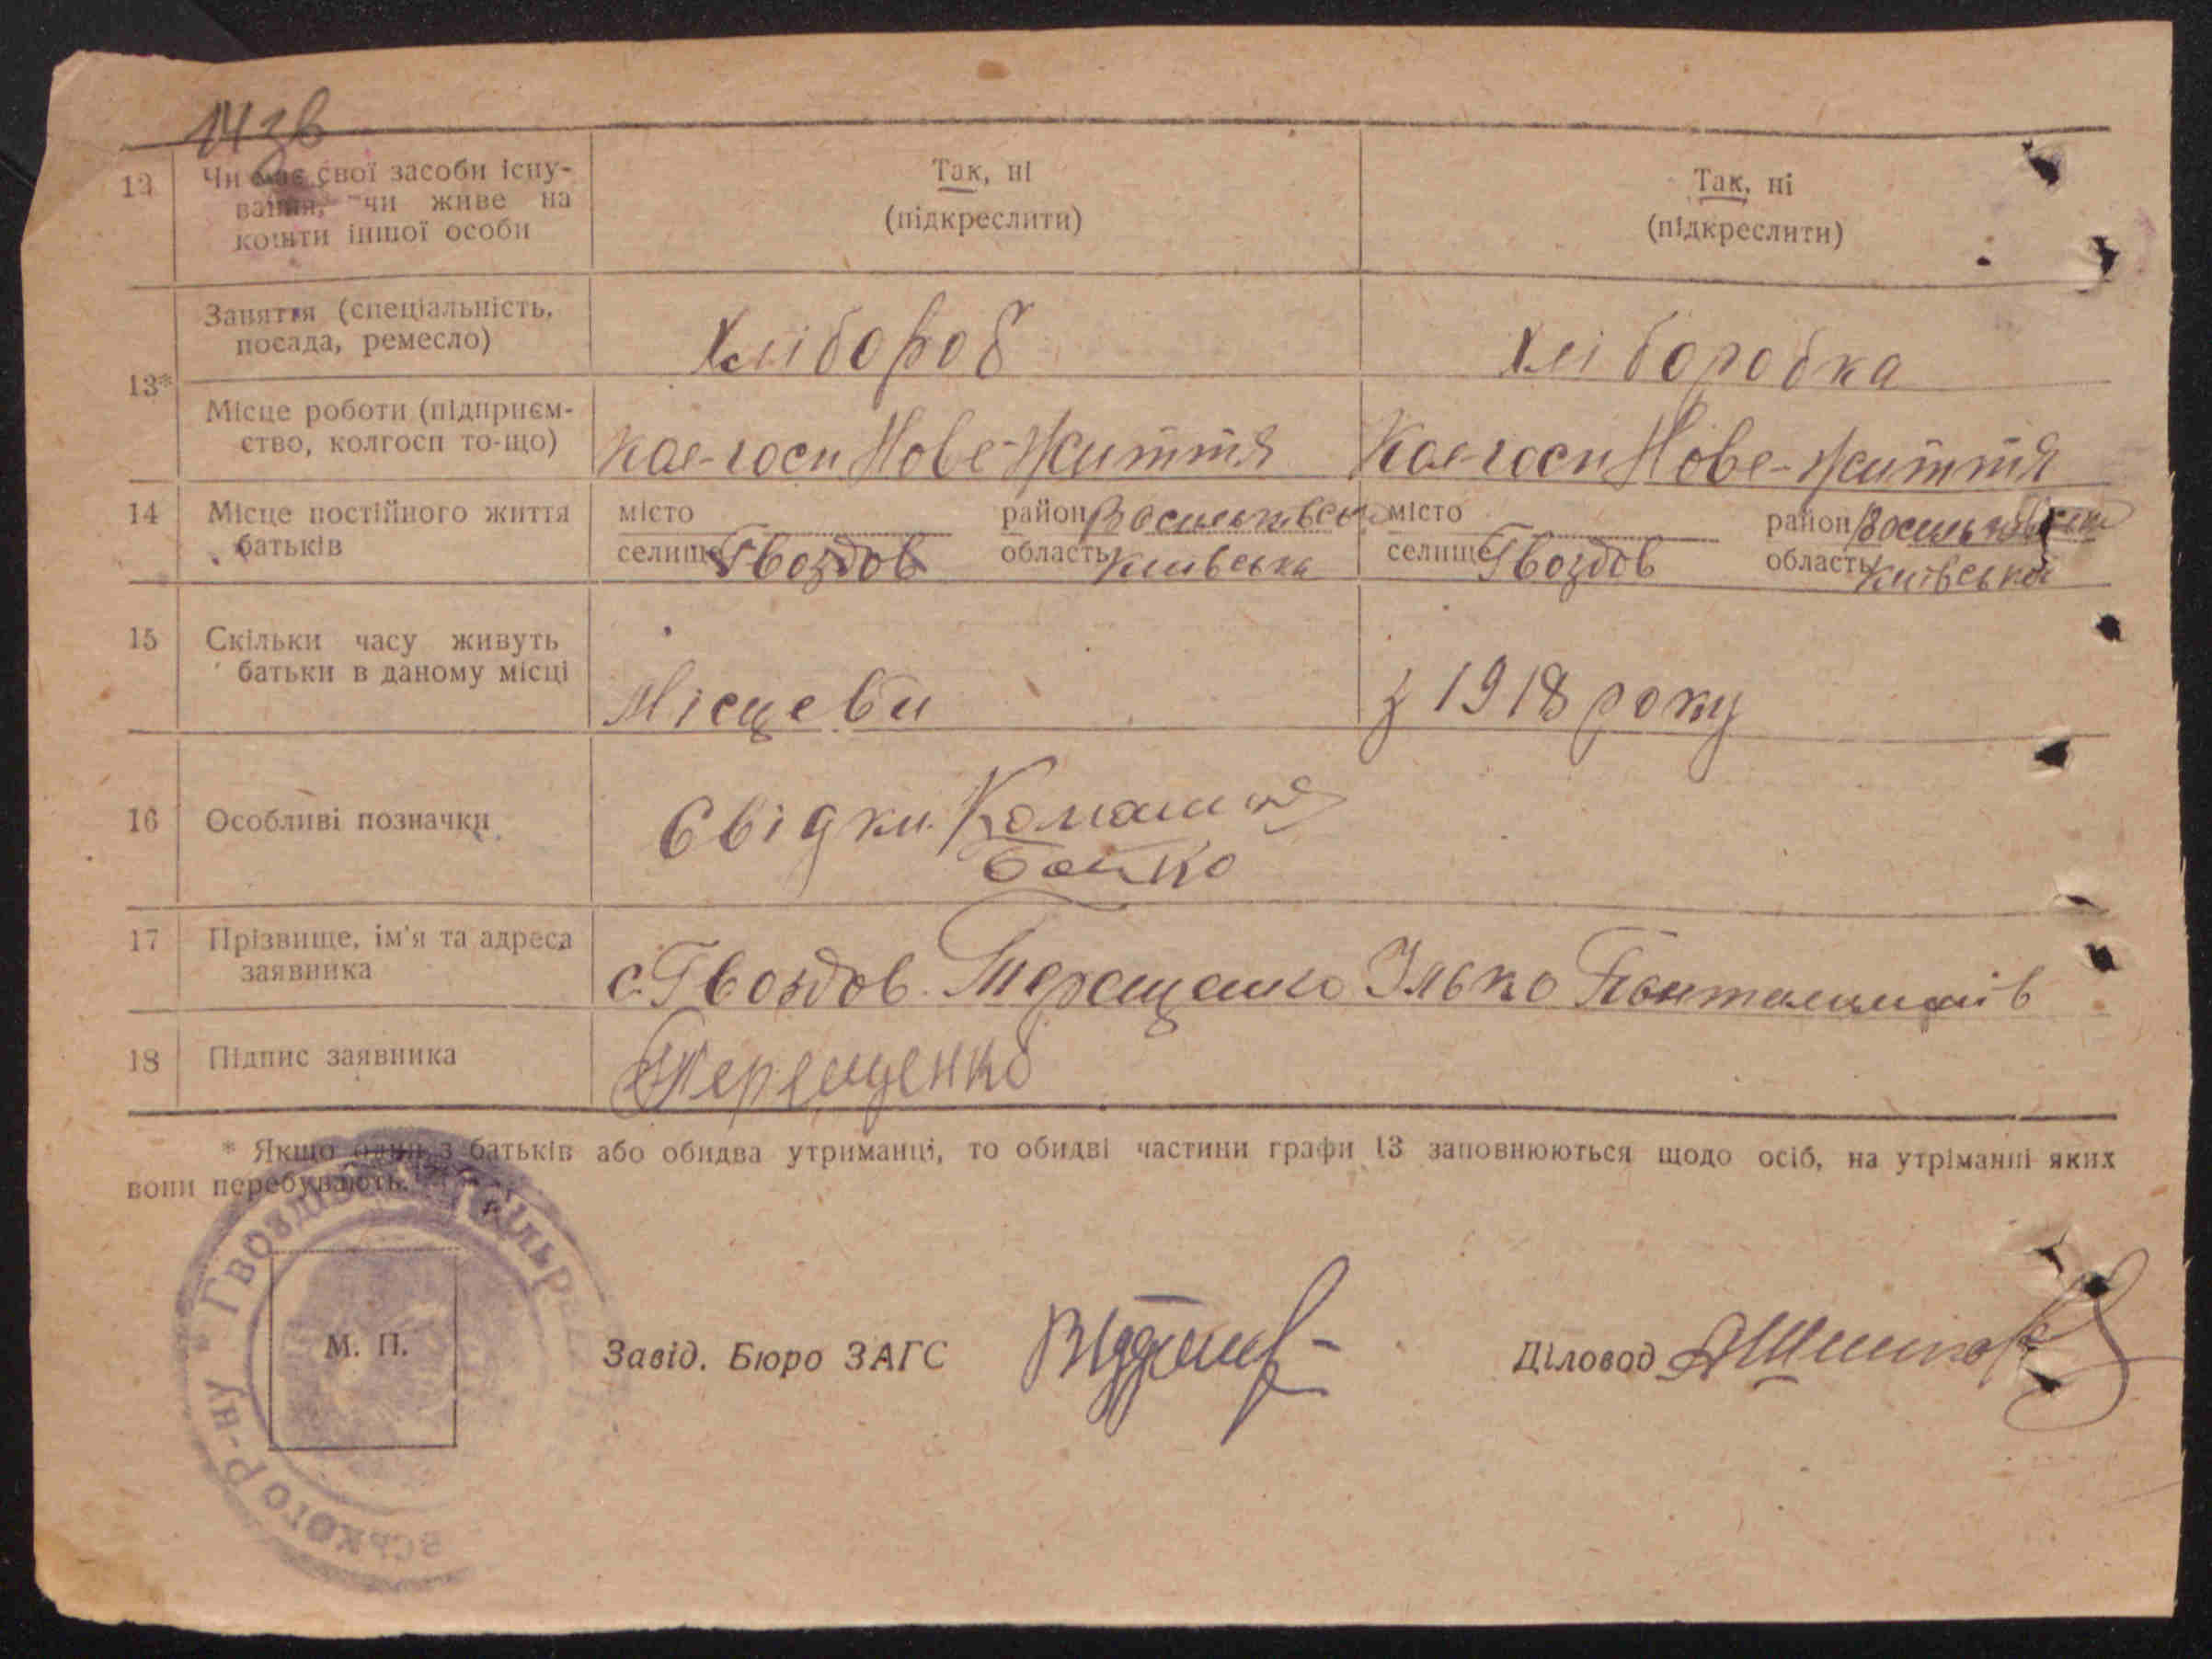 14зв
12 Чи має свої засоби існу- Так, ні Так, ні
вання, чи живе на (підкреслити) (підкреслити)
кошти іншої особи
13* Заняття (спеціальність, Хлібороб Хліборобка
посада, ремесло)
Місце роботи (підприєм- Колгосп Нове-Життя Колгосп Нове-Життя
ство, колгосп то-що)
14 Місце постійного життя місто район Васильківськ місто район Васильківськ
батьків селище Гвоздов область Київська селище Гвоздов область Київська
15 Скільки часу живуть
батьки в даному місці Місцеви з 1918 року
16 Особливі позначки Свідки
Бойко
17 Прізвище, ім'я та адреса
заявника с. Гвоздов. Терещенко Ілько Пантелимонів
18 Підпис заявника Терещенко
* Якщо один з батьків або обидва утриманці, то обидві частини графи 13 заповнюються щодо осіб, на утріманні яких
вони перебувають.
М. П.
Завід. Бюро ЗАГС Діловод
ського р-ну * Гвоздівська сільрада